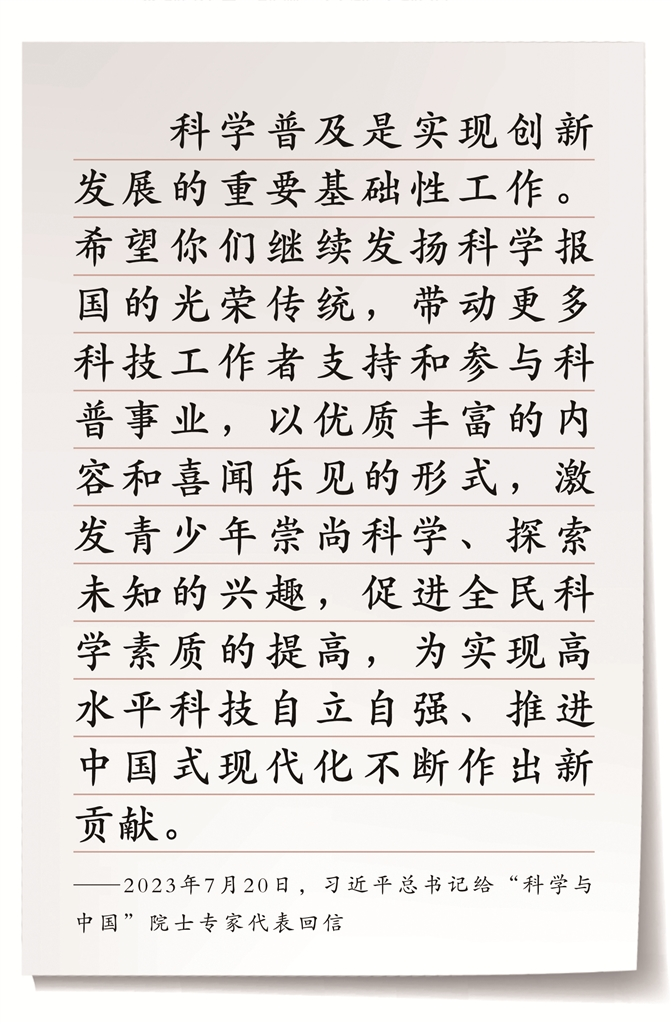 科学普及是实现创新
发展的重要基础性工作。
希望你们继续发扬科学报
国的光荣传统，带动更多
科技工作者支持和参与科
普事业，以优质丰富的内
容和喜闻乐见的形式，激
发青少年崇尚科学、探索
未知的兴趣，促进全民科
学素质的提高，为实现高
水平科技自立自强、推进
中国式现代化不断作出新
贡献。
——2023年7月20日，习近平总书记给“科学与
中国”院士专家代表回信